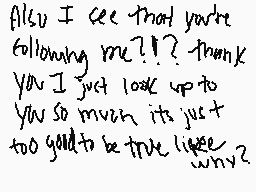 Also I see that you're
following me?!? thank
you I just look up to
you so much its just
too good to be true like
why?